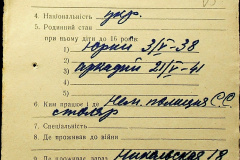 4. Національність укр.
5. Родинний стан
при ньому діти до 16 років:
1) Юрий 3/V-38
2) Аркадий 21/V-41
3)
4)
5)
6. Ким працює і де Нем. полиция С.С.
столяр
7. Спеціяльність
8. Де проживав до війни
Де проживає зараз Никольская 18